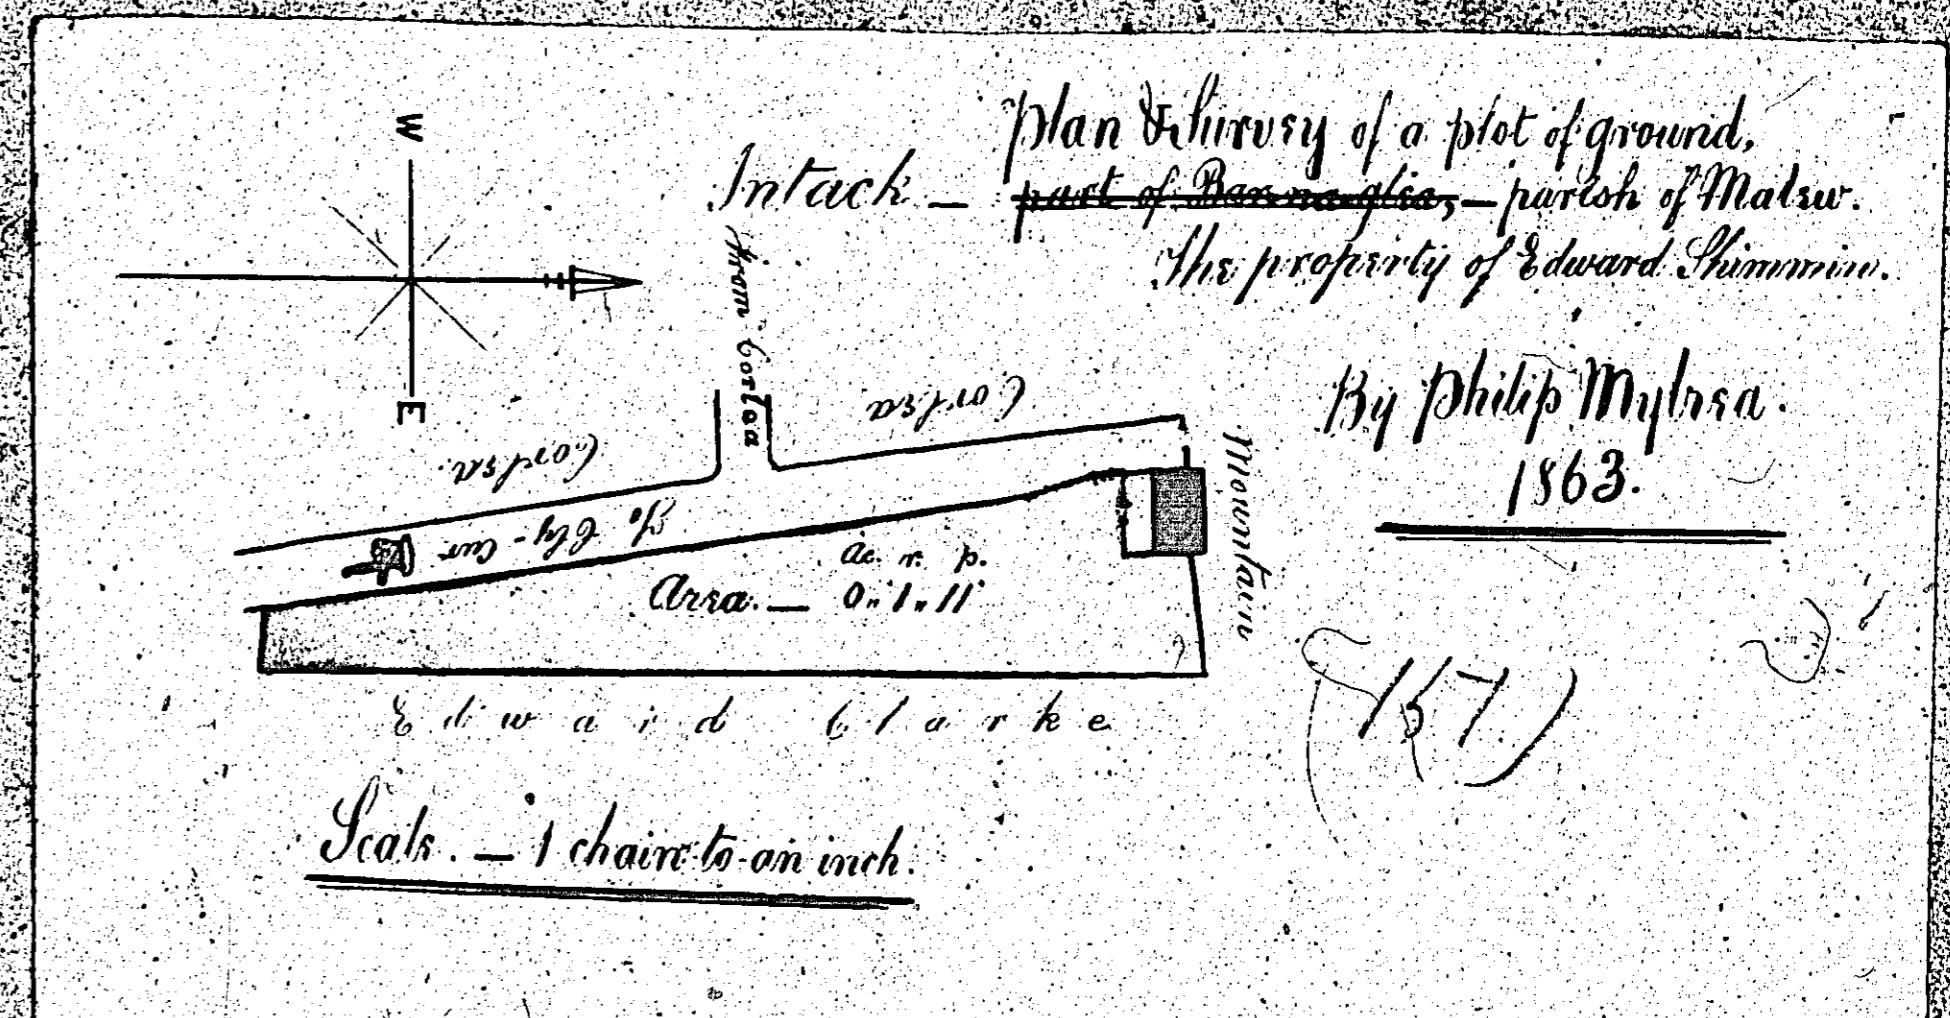 Plan & Survey of a plot of ground,
Intack — part of Barnaglea, — parish of Malew.
The property of Edward Shimmin.
By Philip Mylrea.
1863.
W
E
From Corlea
Corlea
Corlea.
To Cly-Cur.
Mountain
Ac. r. p.
Area. — 0" 1" 11
Edward Clarke
Scale. — 1 chain to an inch.
157